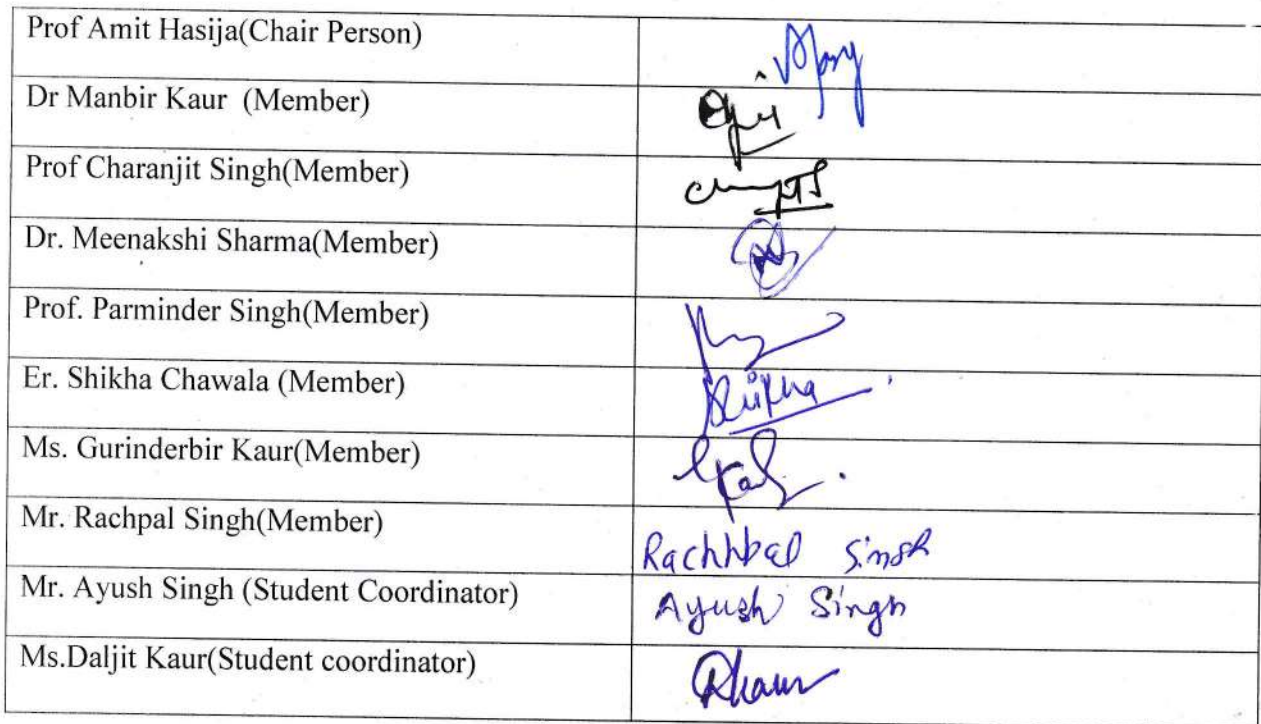 Prof Amit Hasija(Chair Person)
Dr Manbir Kaur (Member)
Prof Charanjit Singh(Member)
Dr. Meenakshi Sharma(Member)
Prof. Parminder Singh(Member)
Er. Shikha Chawala (Member)
Shikha
Ms. Gurinderbir Kaur(Member)
Mr. Rachpal Singh(Member)
Singh
Mr. Ayush Singh (Student Coordinator)
Ayush Singh
Ms.Daljit Kaur(Student coordinator)
DKaur